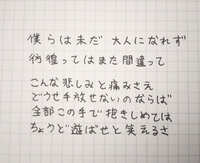 僕らは未だ 大人になれず
彷徨ってはまた間違って
こんな悲しみと痛みさえ
どうせ手放せないのならば
全部この手で抱きしめては
ちょうど遊ばせと笑えるさ